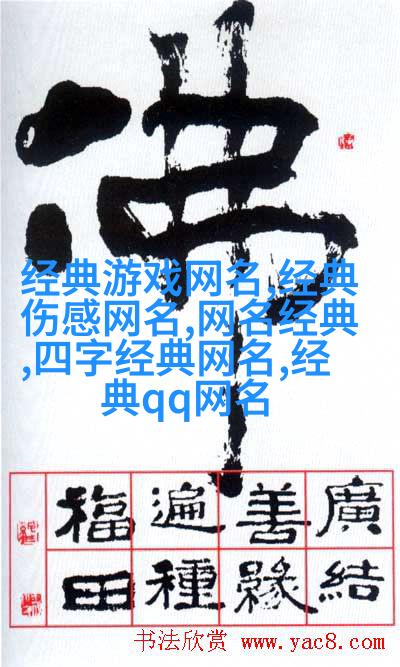 佛
经典游戏网名,经典
伤感网名,网名经典
,四字经典网名,经
典qq网名
廣結
善緣
遍種
福田
书法欣赏 www.yac8.com